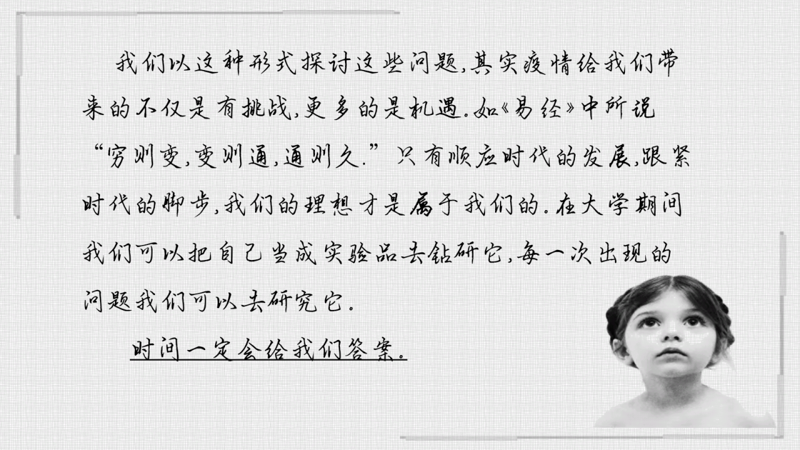 我们以这种形式探讨这些问题,其实疫情给我们带
来的不仅是有挑战,更多的是机遇.如《易经》中所说
“穷则变,变则通,通则久.”只有顺应时代的发展,跟紧
时代的脚步,我们的理想才是属于我们的.在大学期间
我们可以把自己当成实验品去钻研它,每一次出现的
问题我们可以去研究它.
时间一定会给我们答案.